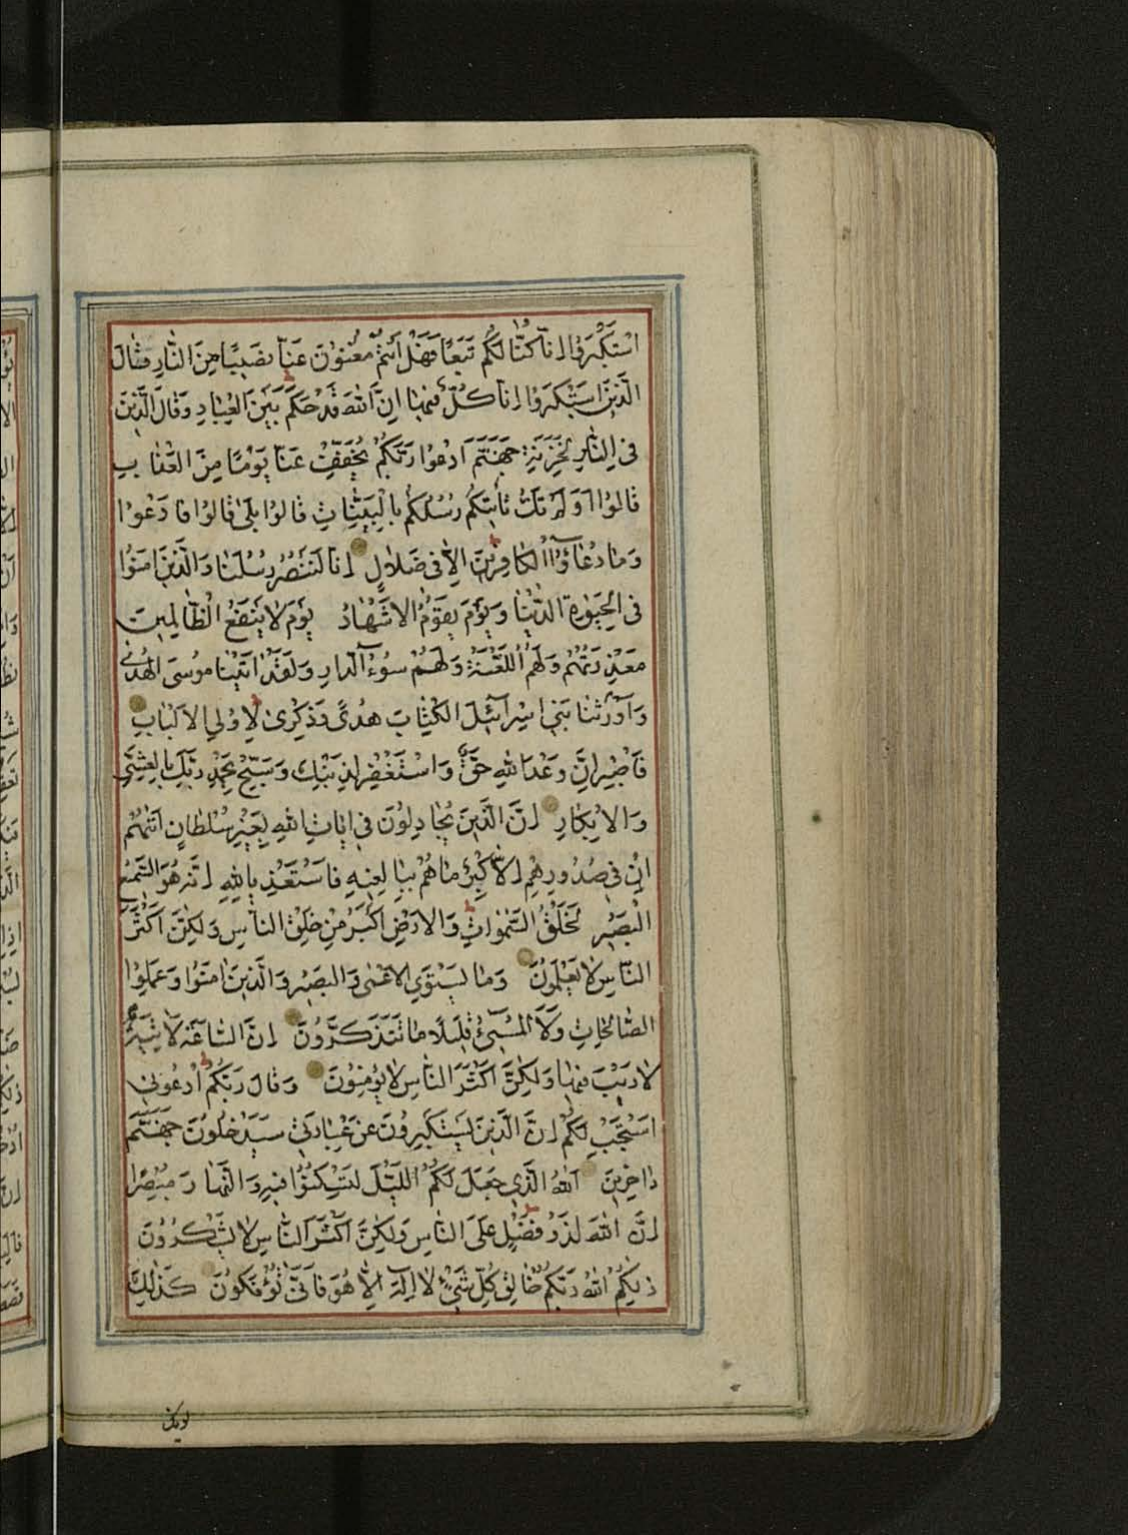 اسْتَكْبَرُوا اِنَّا كُنَّا لَكُمْ تَبَعًا فَهَلْ اَنْتُمْ مُغْنُونَ عَنَّا نَصِيبًا مِنَ النَّارِ قَالَ
الَّذِينَ اسْتَكْبَرُوا اِنَّا كُلٌّ فِيهَا اِنَّ اللهَ قَدْ حَكَمَ بَيْنَ الْعِبَادِ وَقَالَ الَّذِينَ
فِي النَّارِ لِخَزَنَةِ جَهَنَّمَ ادْعُوا رَبَّكُمْ يُخَفِّفْ عَنَّا يَوْمًا مِنَ الْعَذَابِ
قَالُوا اَوَلَمْ تَكُ تَأْتِيكُمْ رُسُلُكُمْ بِالْبَيِّنَاتِ قَالُوا بَلَى قَالُوا فَادْعُوا
وَمَا دُعَاؤُا الْكَافِرِينَ اِلَّا فِي ضَلَالٍ اِنَّا لَنَنْصُرُ رُسُلَنَا وَالَّذِينَ اٰمَنُوا
فِي الْحَيٰوةِ الدُّنْيَا وَيَوْمَ يَقُومُ الْاَشْهَادُ يَوْمَ لَا يَنْفَعُ الظَّالِمِينَ
مَعْذِرَتُهُمْ وَلَهُمُ اللَّعْنَةُ وَلَهُمْ سُوءُ الدَّارِ وَلَقَدْ اٰتَيْنَا مُوسَى الْهُدٰى
وَاَوْرَثْنَا بَنِي اِسْرَائِيلَ الْكِتَابَ هُدًى وَذِكْرٰى لِاُولِي الْاَلْبَابِ
فَاصْبِرْ اِنَّ وَعْدَ اللهِ حَقٌّ وَاسْتَغْفِرْ لِذَنْبِكَ وَسَبِّحْ بِحَمْدِ رَبِّكَ بِالْعَشِيِّ
وَالْاِبْكَارِ اِنَّ الَّذِينَ يُجَادِلُونَ فِي اٰيَاتِ اللهِ بِغَيْرِ سُلْطَانٍ اَتٰيهُمْ
اِنْ فِي صُدُورِهِمْ اِلَّا كِبْرٌ مَا هُمْ بِبَالِغِيهِ فَاسْتَعِذْ بِاللهِ اِنَّهُ هُوَ السَّمِيعُ
الْبَصِيرُ لَخَلْقُ السَّمٰوَاتِ وَالْاَرْضِ اَكْبَرُ مِنْ خَلْقِ النَّاسِ وَلٰكِنَّ اَكْثَرَ
النَّاسِ لَا يَعْلَمُونَ وَمَا يَسْتَوِي الْاَعْمٰى وَالْبَصِيرُ وَالَّذِينَ اٰمَنُوا وَعَمِلُوا
الصَّالِحَاتِ وَلَا الْمُسِيءُ قَلِيلًا مَا تَتَذَكَّرُونَ اِنَّ السَّاعَةَ لَاٰتِيَةٌ
لَا رَيْبَ فِيهَا وَلٰكِنَّ اَكْثَرَ النَّاسِ لَا يُؤْمِنُونَ وَقَالَ رَبُّكُمُ ادْعُونِي
اَسْتَجِبْ لَكُمْ اِنَّ الَّذِينَ يَسْتَكْبِرُونَ عَنْ عِبَادَتِي سَيَدْخُلُونَ جَهَنَّمَ
دَاخِرِينَ اَللهُ الَّذِي جَعَلَ لَكُمُ اللَّيْلَ لِتَسْكُنُوا فِيهِ وَالنَّهَارَ مُبْصِرًا
اِنَّ اللهَ لَذُو فَضْلٍ عَلَى النَّاسِ وَلٰكِنَّ اَكْثَرَ النَّاسِ لَا يَشْكُرُونَ
ذٰلِكُمُ اللهُ رَبُّكُمْ خَالِقُ كُلِّ شَيْءٍ لَا اِلٰهَ اِلَّا هُوَ فَاَنّٰى تُؤْفَكُونَ كَذٰلِكَ